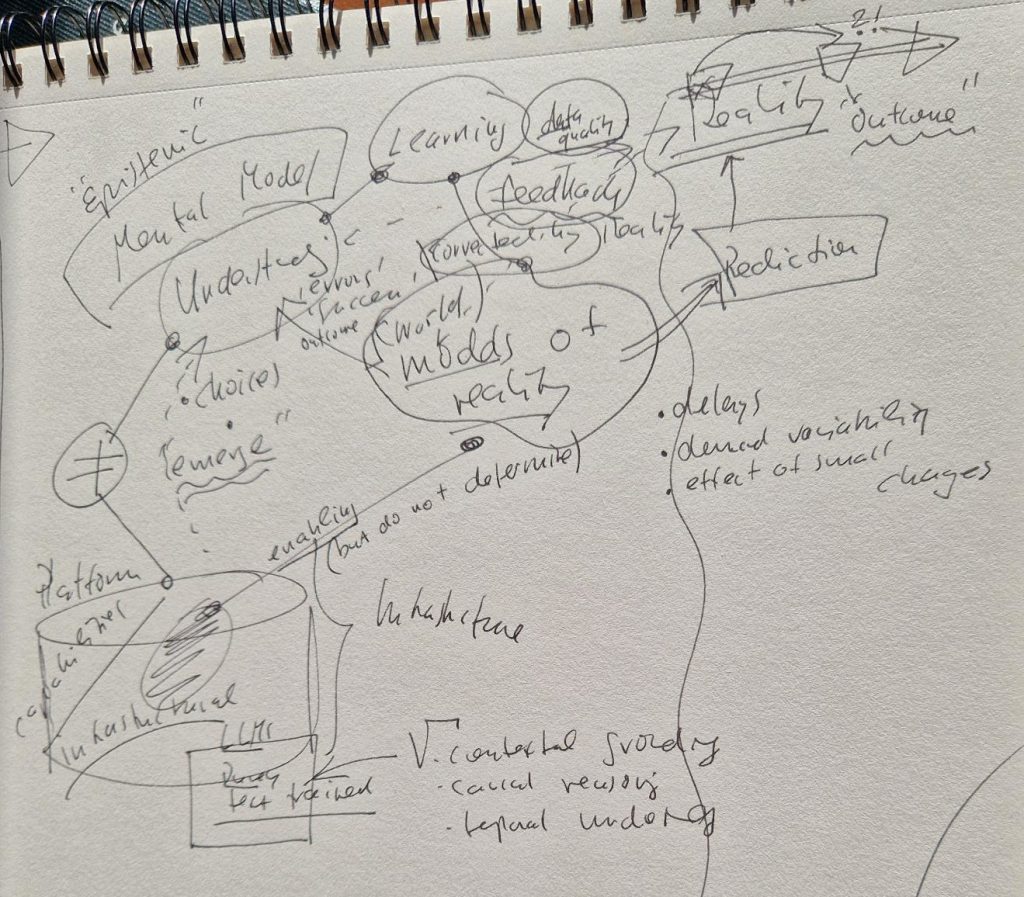 "Epistemic"
Mental Model
Learning
data
quality
feedback
Reality
"outcome"
?!
Correctability
Reality
Prediction
"errors'
success'
outcome
(world)
models of
reality
choices
"emerge"
• delays
• demand variability
• effect of small
chages
enabling
(but do not determine)
Platform
capabilities
Infrastructural
Infrastructure
LLMs
text trained
contextal grounding
- causal reasoning
- temporal